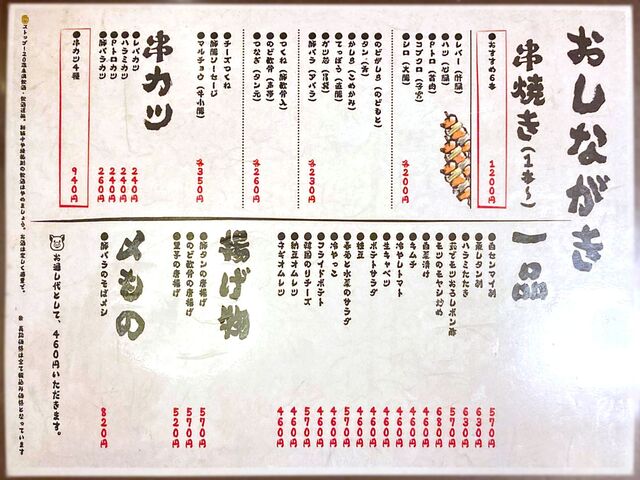 おしながき
串焼き(1本〜)
●おすすめ6本 1200円
●レバー(肝臓)
●ハツ(心臓)
●Pトロ(首肉)
●コブクロ(子宮)
●シロ(大腸)
各200円
●のどがしら(のどもと)
●タン(舌)
●かしら(こめかみ)
●てっぽう(直腸)
●ガツ芯(胃袋)
●豚バラ(アバラ)
各230円
●つくね(豚軟骨入)
●のど軟骨(声帯)
●つなぎ(タン元)
各260円
●チーズつくね
●豚腸ソーセージ
●マルチョウ(牛小腸)
各350円
串カツ
●レバカツ 240円
●ハラミカツ 240円
●Pトロカツ 240円
●豚バラカツ 260円
●串カツ4種 940円
一品
●白センマイ刺 570円
●蒸しタン刺 630円
●ハラミたたき 630円
●茹でモツおろしポン酢 570円
●モツのモヤシ炒め 680円
●白菜漬け 460円
●キムチ 460円
●冷やしトマト 460円
●生キャベツ 460円
●ポテトサラダ 460円
●枝豆 460円
●春菊と水菜のサラダ 570円
●冷やっこ 460円
●フライドポテト 460円
●韓国のりチーズ 570円
●納豆オムレツ 460円
●ネギオムレツ 460円
揚げ物
●豚タンの唐揚げ 570円
●のど軟骨の唐揚げ 570円
●里芋の唐揚げ 520円
〆もの
●豚バラのそばメシ 820円
お通し代として、460円いただきます。
ストップ!20歳未満飲酒・飲酒運転。妊娠中や授乳期の飲酒はやめましょう。お酒は楽しく適量で。
※表記価格は全て税込み価格となっています